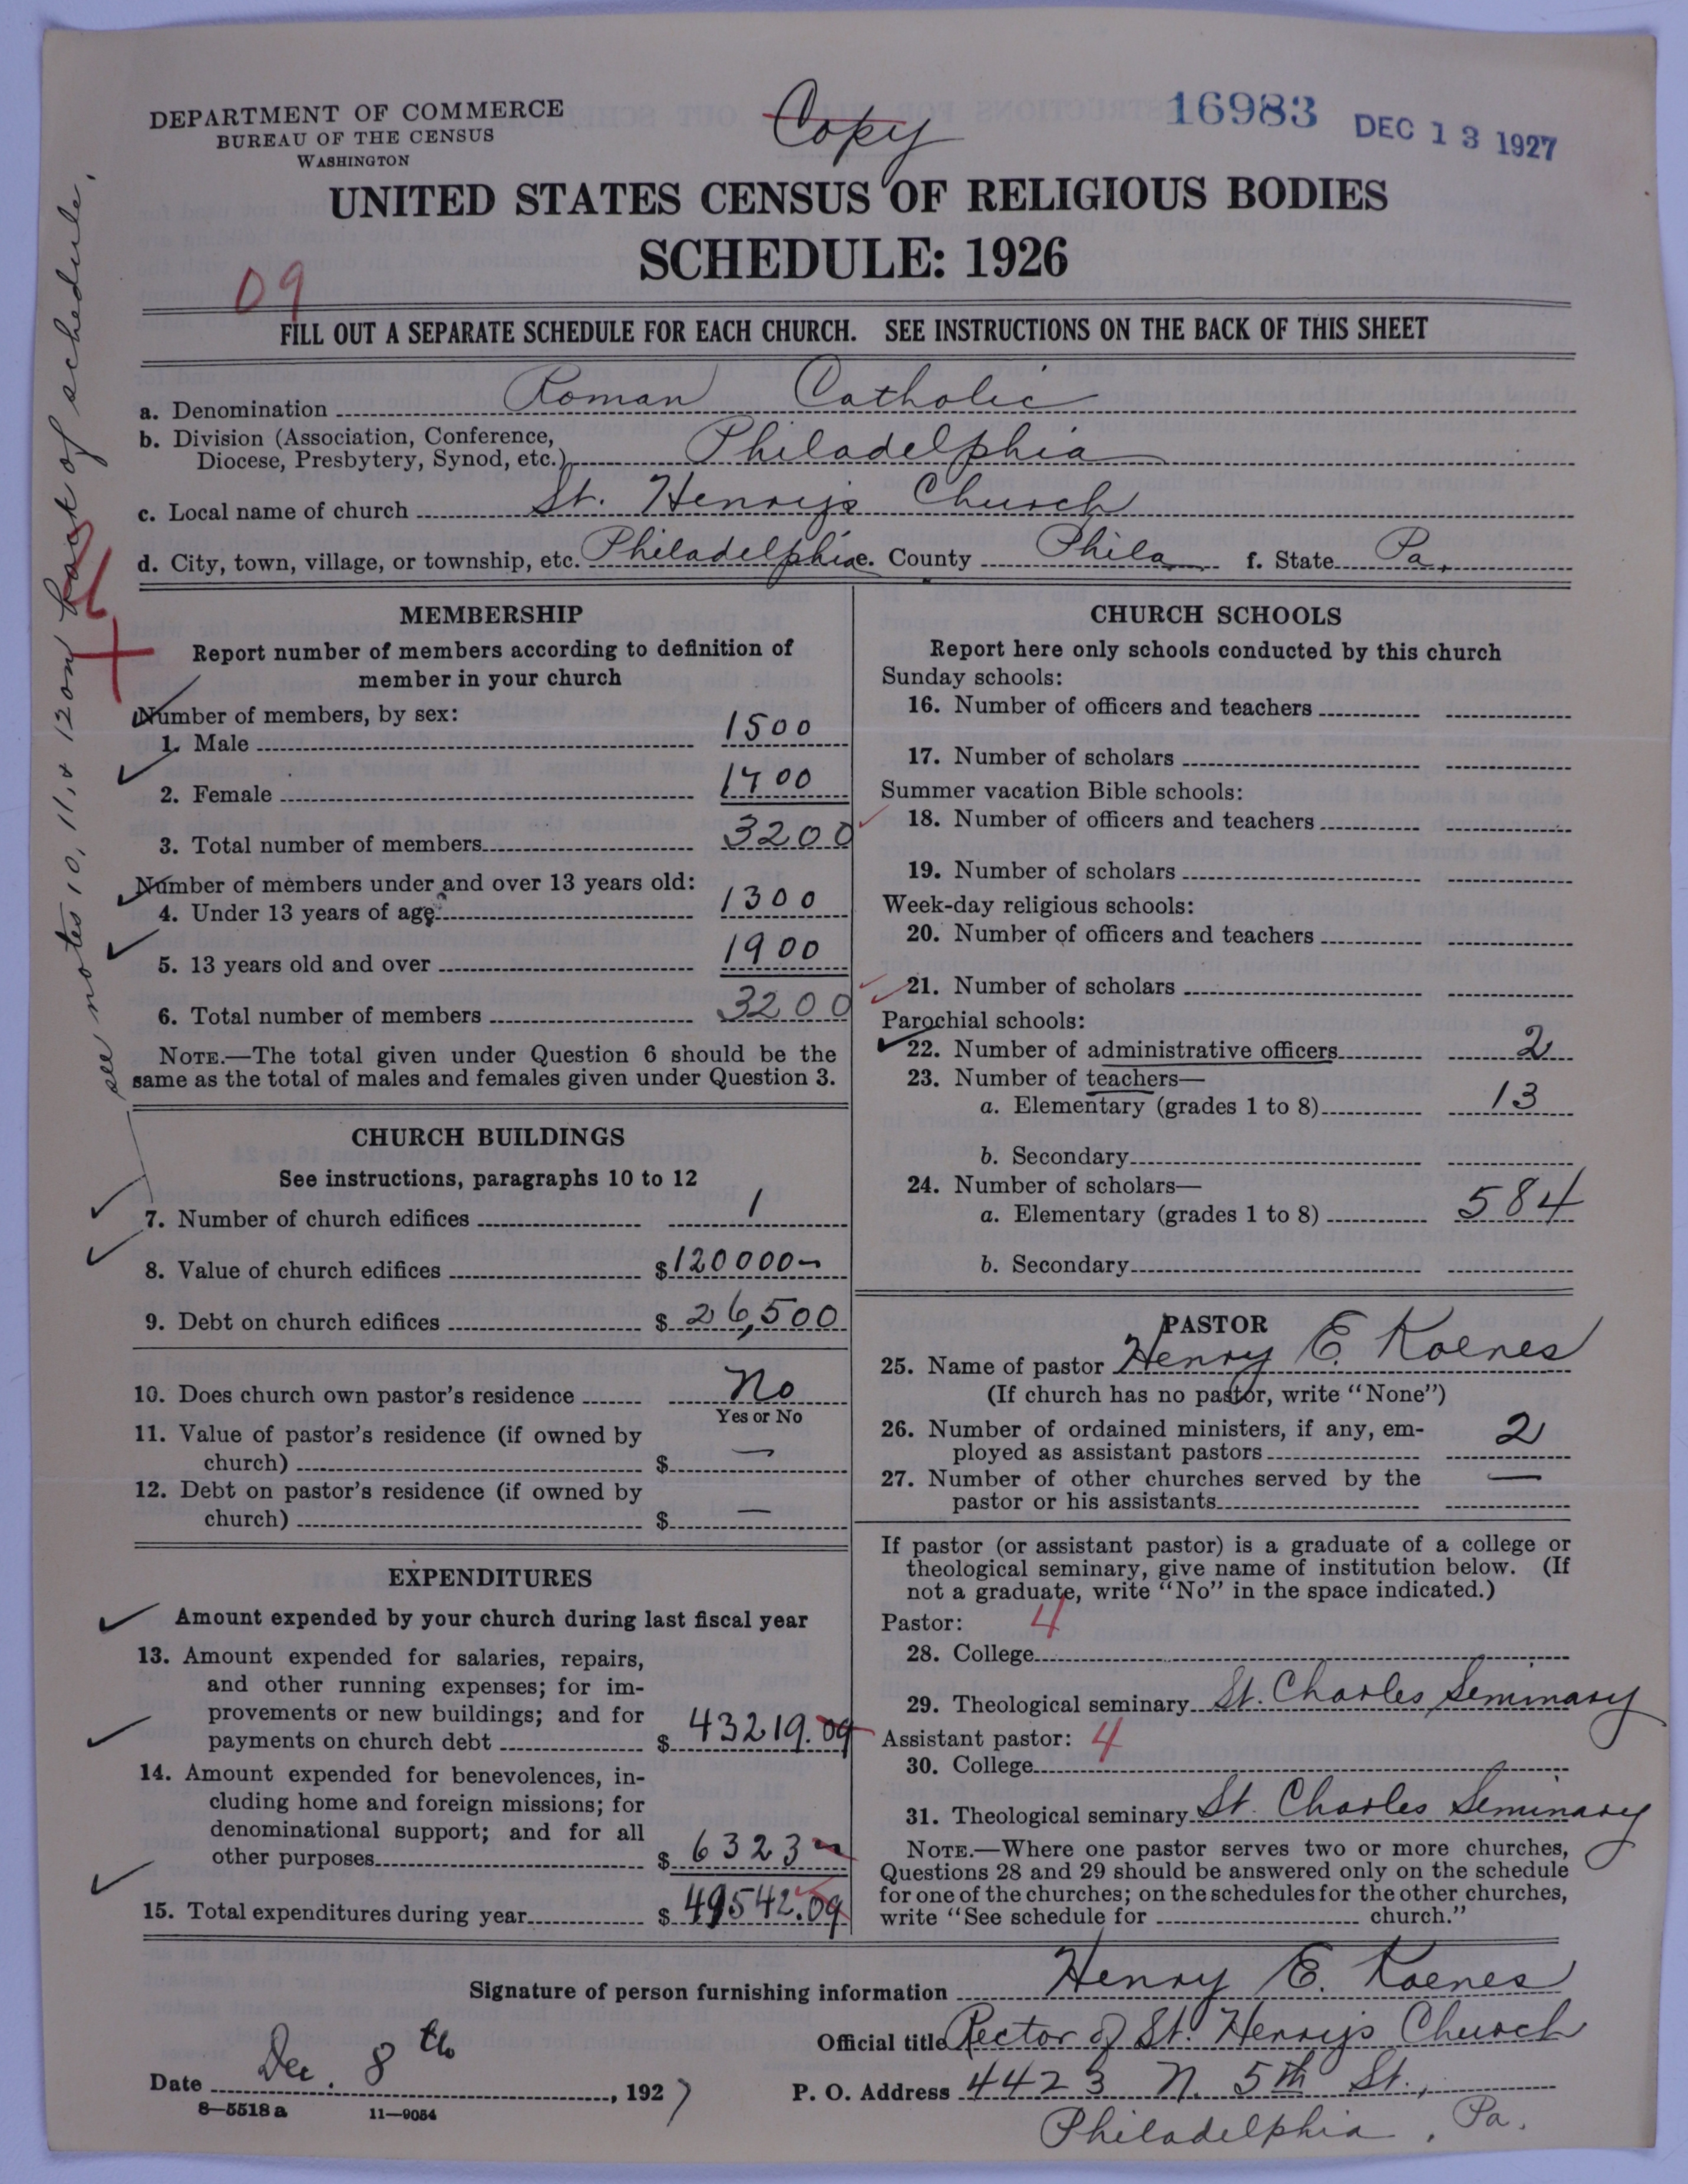 DEPARTMENT OF COMMERCE
BUREAU OF THE CENSUS
WASHINGTON
Copy
16983 DEC 13 1927
UNITED STATES CENSUS OF RELIGIOUS BODIES
SCHEDULE: 1926
09
FILL OUT A SEPARATE SCHEDULE FOR EACH CHURCH. SEE INSTRUCTIONS ON THE BACK OF THIS SHEET
a. Denomination Roman Catholic
b. Division (Association, Conference,
Diocese, Presbytery, Synod, etc.) Philadelphia
c. Local name of church St. Henry's Church
d. City, town, village, or township, etc. Philadelphia e. County Phila f. State Pa.
see notes 10, 11, & 12 on back of schedule.
MEMBERSHIP
Report number of members according to definition of
member in your church
Number of members, by sex:
1. Male 1500
2. Female 1700
3. Total number of members 3200
Number of members under and over 13 years old:
4. Under 13 years of age 1300
5. 13 years old and over 1900
6. Total number of members 3200
NOTE.—The total given under Question 6 should be the
same as the total of males and females given under Question 3.
CHURCH BUILDINGS
See instructions, paragraphs 10 to 12
7. Number of church edifices 1
8. Value of church edifices $ 120000—
9. Debt on church edifices $ 26,500
10. Does church own pastor's residence No
Yes or No
11. Value of pastor's residence (if owned by
church) $ —
12. Debt on pastor's residence (if owned by
church) $ —
EXPENDITURES
Amount expended by your church during last fiscal year
13. Amount expended for salaries, repairs,
and other running expenses; for im-
provements or new buildings; and for
payments on church debt $ 43219.09
14. Amount expended for benevolences, in-
cluding home and foreign missions; for
denominational support; and for all
other purposes $ 6323—
15. Total expenditures during year $ 49542.09
CHURCH SCHOOLS
Report here only schools conducted by this church
Sunday schools:
16. Number of officers and teachers
17. Number of scholars
Summer vacation Bible schools:
18. Number of officers and teachers
19. Number of scholars
Week-day religious schools:
20. Number of officers and teachers
21. Number of scholars
Parochial schools:
22. Number of administrative officers 2
23. Number of teachers—
a. Elementary (grades 1 to 8) 13
b. Secondary
24. Number of scholars—
a. Elementary (grades 1 to 8) 584
b. Secondary
PASTOR
25. Name of pastor Henry E. Koenes
(If church has no pastor, write "None")
26. Number of ordained ministers, if any, em-
ployed as assistant pastors 2
27. Number of other churches served by the
pastor or his assistants —
If pastor (or assistant pastor) is a graduate of a college or
theological seminary, give name of institution below. (If
not a graduate, write "No" in the space indicated.)
Pastor: 4
28. College
29. Theological seminary St. Charles Seminary
Assistant pastor: 4
30. College
31. Theological seminary St. Charles Seminary
NOTE.—Where one pastor serves two or more churches,
Questions 28 and 29 should be answered only on the schedule
for one of the churches; on the schedules for the other churches,
write "See schedule for church."
Signature of person furnishing information Henry E. Koenes
Official title Rector of St. Henry's Church
Date Dec. 8th, 1927
P. O. Address 4423 N. 5th St.,
Philadelphia, Pa.
8—5518a 11—9054